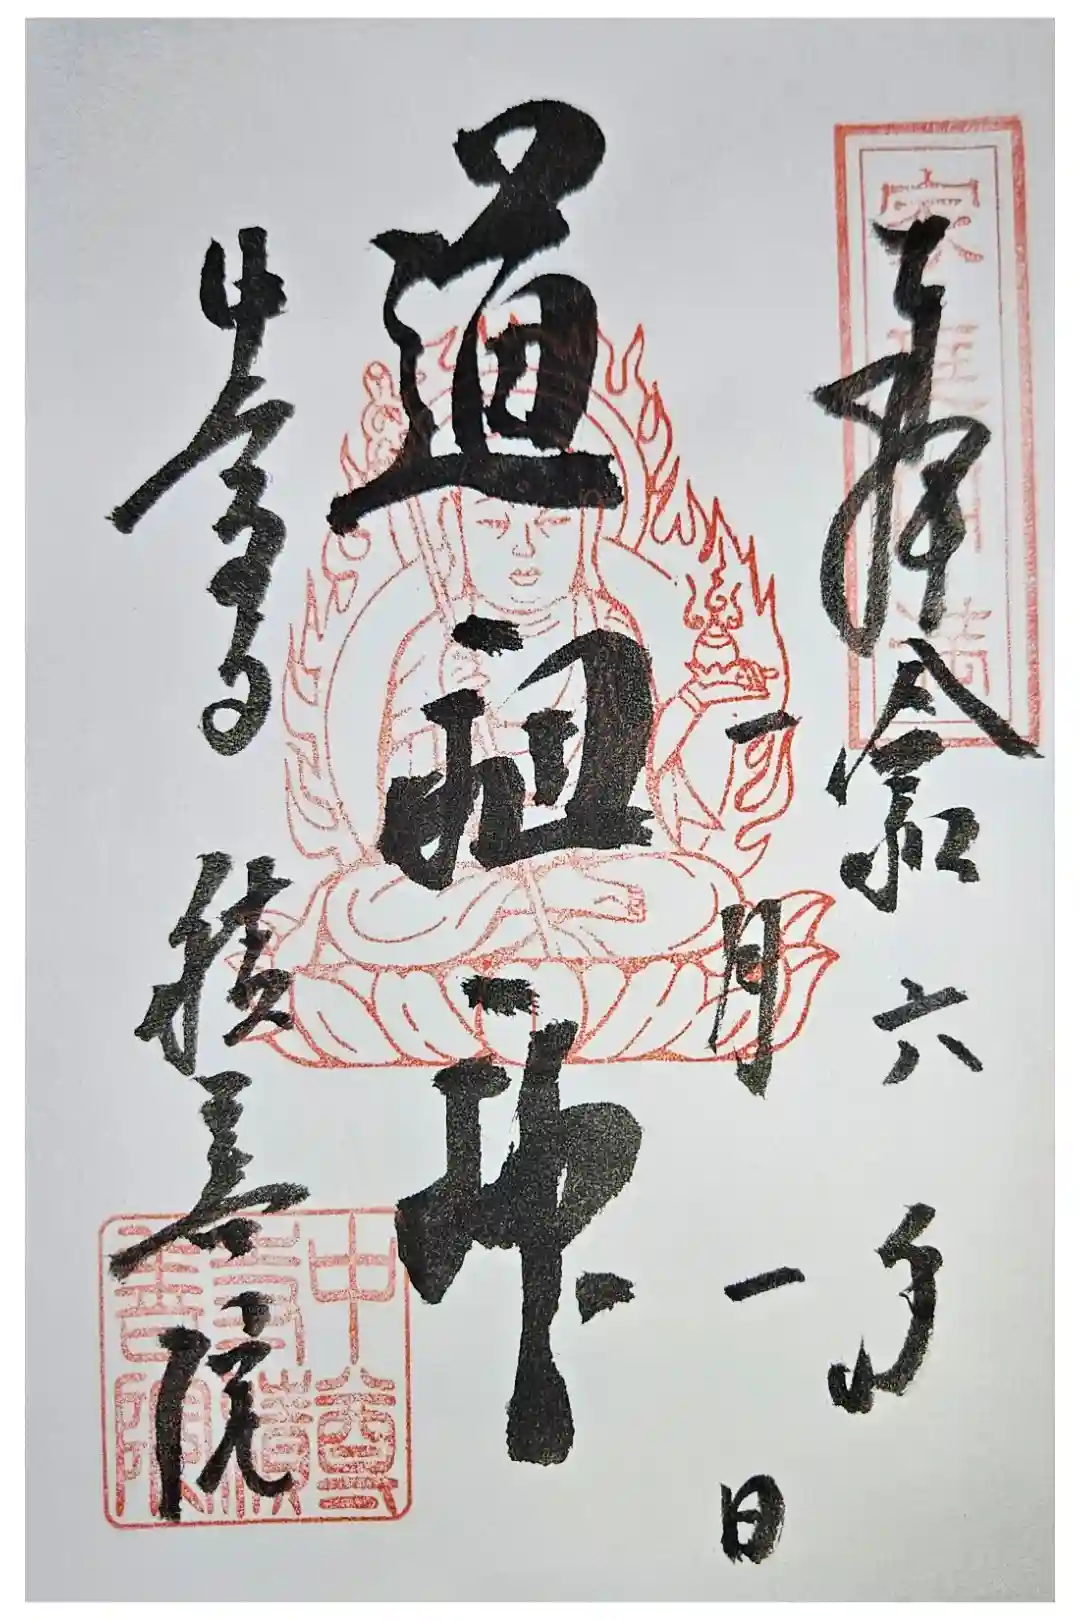 奉拝 令和六年
一月一日
道祖神
中尊寺 積善院
中尊
寺積
善院